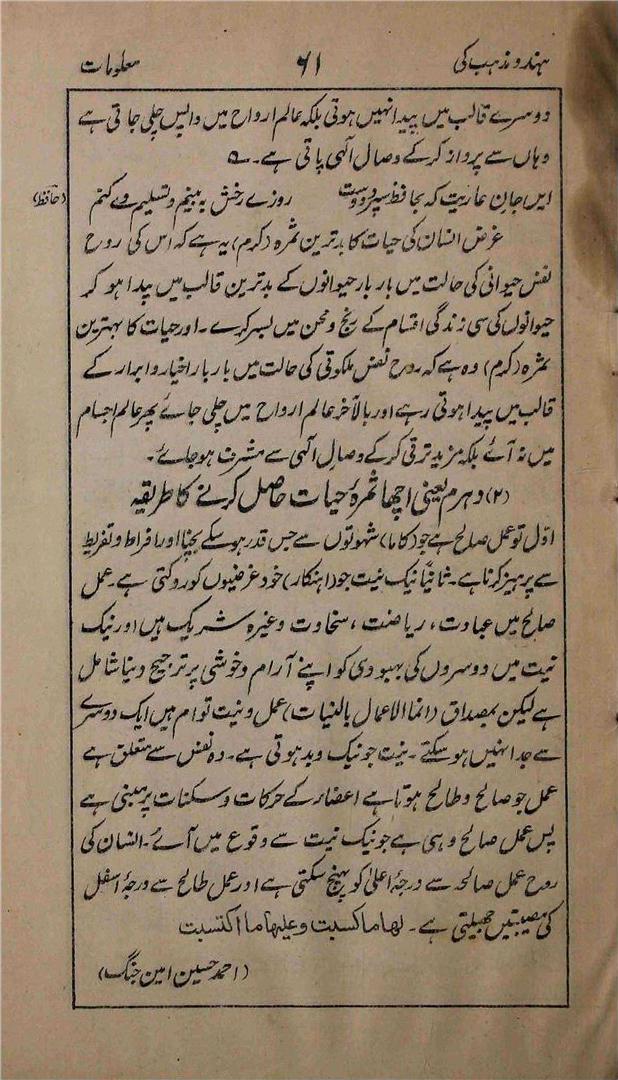 ہندو مذہب کی ۶۱ معلومات
دوسرے قالب میں پیدا نہیں ہوتی بلکہ عالم ارواح میں واپس چلی جاتی ہے
وہاں سے پرواز کرکے وصال آلٰہی پاتی ہے۔ ؎
ایں جان عاریت کہ بحافظ سپرد دوست روزے رخش بہ بینم و تسلیم وے کنم (حافظ)
غرض انسان کی حیات کا بدترین ثمرہ (کرم) یہ ہے کہ اس کی روح
نفس حیوانی کی حالت میں بار بار حیوانوں کے بدترین قالب میں پیدا ہو کر
حیوانوں کی سی زندگی اقسام کے رنج و محن میں بسر کرے۔ اور حیات کا بہترین
ثمرہ (کرم) وہ ہے کہ روح نفس ملکوتی کی حالت میں بار بار اخیار و ابرار کے
قالب میں پیدا ہوتی رہے اور بالآخر عالم ارواح میں چلی جائے پھر عالم اجسام
میں نہ آئے بلکہ مزید ترقی کرکے وصال الٰہی سے مشرف ہوجائے۔
(۲) دہرم یعنی اچھا ثمرۂ حیات حاصل کرنے کا طریقہ
اوّل تو عمل صالح ہے جو (کاما) شہوتوں سے جس قدر ہوسکے بچنا اور افراط و تفریط
سے پرہیز کرنا ہے۔ ثانیاً نیک نیت جو (اہنکار) خود غرضیوں کو روکتی ہے۔ عمل
صالح میں عبادت، ریاضت، سخاوت وغیرہ شریک ہیں اور نیک
نیت میں دوسروں کی بہبودی کو اپنے آرام و خوشی پر ترجیح دینا شامل
ہے لیکن بمصداق (انما الاعمال بالنیات) عمل و نیت توام ہیں ایک دوسرے
سے جدا نہیں ہوسکتے۔ نیت جو نیک و بد ہوتی ہے۔ وہ نفس سے متعلق ہے
عمل جو صالح و طالح ہوتا ہے اعضاء کے حرکات و سکنات پر مبنی ہے
پس عمل صالح وہی ہے جو نیک نیت سے وقوع میں آئے۔ انسان کی
روح عمل صالحہ سے درجۂ اعلیٰ کو پہنچ سکتی ہے اور عمل طالح سے درجۂ اسفل
کی مصیبتیں جھیلتی ہے۔ لھا ما کسبت و علیھا ما اکتسبت
(احمد حسین امین جنگ)